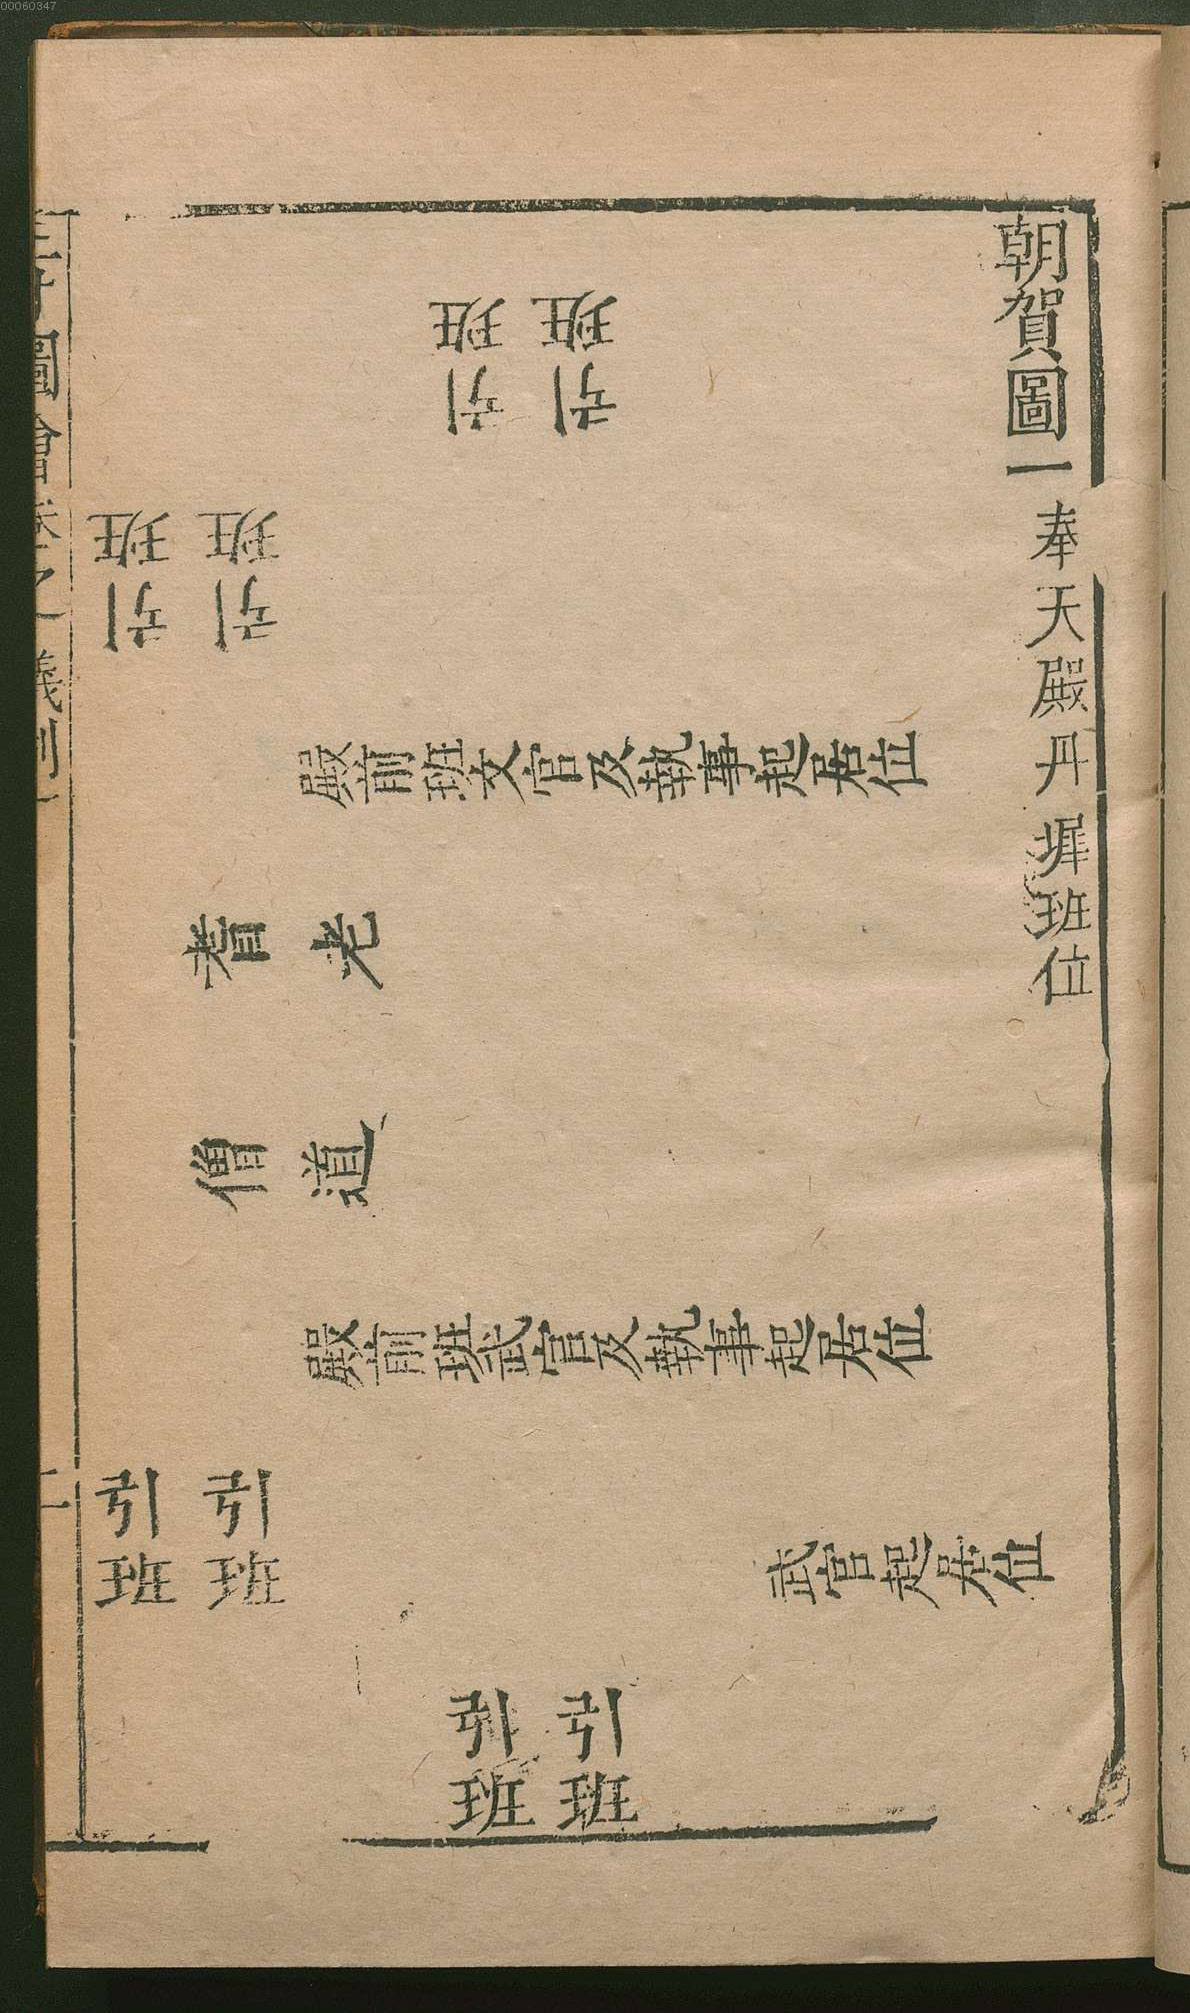 00060347
朝賀圖一
奉天殿丹墀班位
引班
引班
引班
引班
殿前班文官及執事起居位
耆老
僧道
殿前班武官及執事起居位
武官起居位
引班
引班
引班
引班
圖會卷之一
儀制一